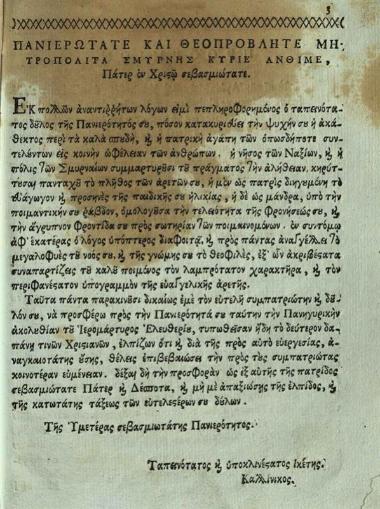 3
ΠΑΝΙΕΡΩΤΑΤΕ ΚΑΙ ΘΕΟΠΡΟΒΛΗΤΕ ΜΗ-
ΤΡΟΠΟΛΙΤΑ ΣΜΥΡΝΗΣ ΚΥΡΙΕ ΑΝΘΙΜΕ,
Πάτερ ἐν Χριςῷ σεβασμιώτατε.
Ἐκ πολλῶν ἀναντιρρήτων λόγων εἰμὶ πεπληροφορημένος ὁ ταπεινότα-
τος δοῦλος τῆς Πανιερότητός σου, πόσον κατακυριεύει τὴν ψυχήν σου ἡ ἀκά-
θεκτος περὶ τὰ καλὰ σπουδὴ, καὶ ἡ πατρικὴ ἀγάπη τῶν ὁπωσδήποτε συν-
τελούντων εἰς κοινὴν ὠφέλειαν τῶν ἀνθρώπων. ἡ νῆσος τῶν Ναξίων, καὶ ἡ
πόλις τῶν Σμυρναίων συμμαρτυροῦσι τοῦ πράγματος τὴν ἀλήθειαν, κηρύτ-
τουσαι πανταχοῦ τὸ πλῆθος τῶν ἀρετῶν σου, ἡ μὲν ὡς πατρὶς διηγουμένη τὸ
εὐάγωγον καὶ προσηνὲς τῆς παιδικῆς σου ἡλικίας, ἡ δὲ ὡς μάνδρα, ὑπὸ τὴν
ποιμαντικήν σου ῥάβδον, ὁμολογοῦσα τὴν τελειότητα τῆς φρονήσεώς σου, καὶ
τὴν ἄγρυπνον φροντίδα σου πρὸς σωτηρίαν τῶν ποιμαινομένων. ἐν συντόμῳ
ἀφ' ἑκατέρας ὁ λόγος ὑπόπτερος διαφοιτᾷ, καὶ πρὸς πάντας ἀναγγέλλει τὸ
μεγαλοφυὲς τοῦ νοός, καὶ τῆς γνώμης σου τὸ θεοφιλὲς, ἐξ' ὧν ἀκριβέςατα
συναπαρτίζεις τοῦ καλοῦ ποιμένος τὸν λαμπρότατον χαρακτῆρα, καὶ τὸν
περιφανέςατον ὑπογραμμὸν τῆς εὐαγγελικῆς ἀρετῆς.
Ταῦτα πάντα παρακινοῦσι δικαίως ἐμὲ τὸν εὐτελῆ συμπατριώτην καὶ δοῦ-
λόν σου, νὰ προσφέρω πρὸς τὴν Πανιερότητά σου ταύτην τὴν Πανηγυρικὴν
ἀκολουθίαν τοῦ Ἱερομάρτυρος Ἐλευθερίου, τυπωθεῖσαν ἤδη τὸ δεύτερον δα-
πάνῃ τινῶν Χριςιανῶν, ἐλπίζων ὅτι καὶ διὰ τῆς πρὸς αὐτὸ εὐεργεσίας, ἀ-
ναγκαιοτάτης οὔσης, θέλεις ἐπιβεβαιώσει τὴν πρὸς τοὺς συμπατριώτας
κοινοτέραν εὐμένειαν. δέξαι δὴ τὴν προσφορὰν ὡς ἐξ αὐτῆς τῆς πατρίδος
σεβασμιώτατε Πάτερ καὶ Δέσποτα, καὶ μή με ἀπαξιώσῃς τῆς ἐλπίδος, καὶ
τῆς κατωτάτης τάξεως τῶν εὐτελεςέρων σου δούλων.
Τῆς Ὑμετέρας σεβασμιωτάτης Πανιερότητος.
Ταπεινότατος καὶ ὑποκλινέςατος ἱκέτης.
Καλλίνικος.